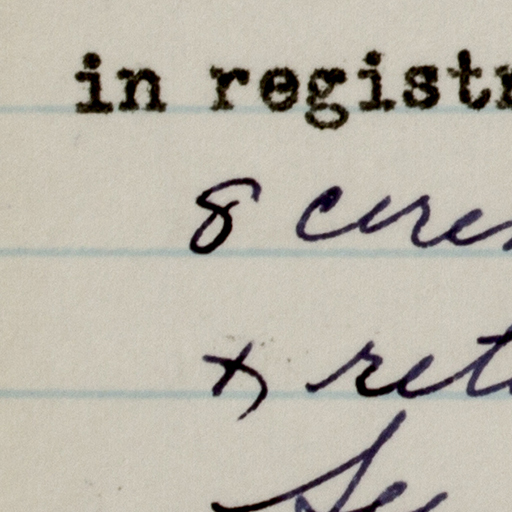 in registr
8 ceres
x ret
Se